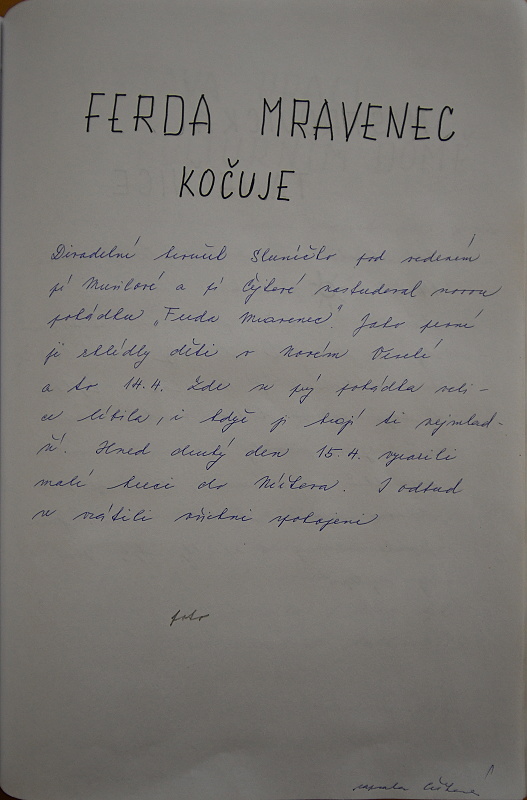 FERDA MRAVENEC
KOČUJE
Divadelní kroužek Sluníčko pod vedením
pí Musilové a pí nastudoval novou
pohádku „Ferda Mravenec". Jako první
ji shlédly děti v Novém Veselí
a to 14.4. Zde se prý pohádka veli-
ce líbila, i když ji hrají ti nejmlad-
ší. Hned druhý den 15.4. vyrazili
malí herci do Níčkova. I odtud
se vrátili všichni spokojeni
foto
napsala